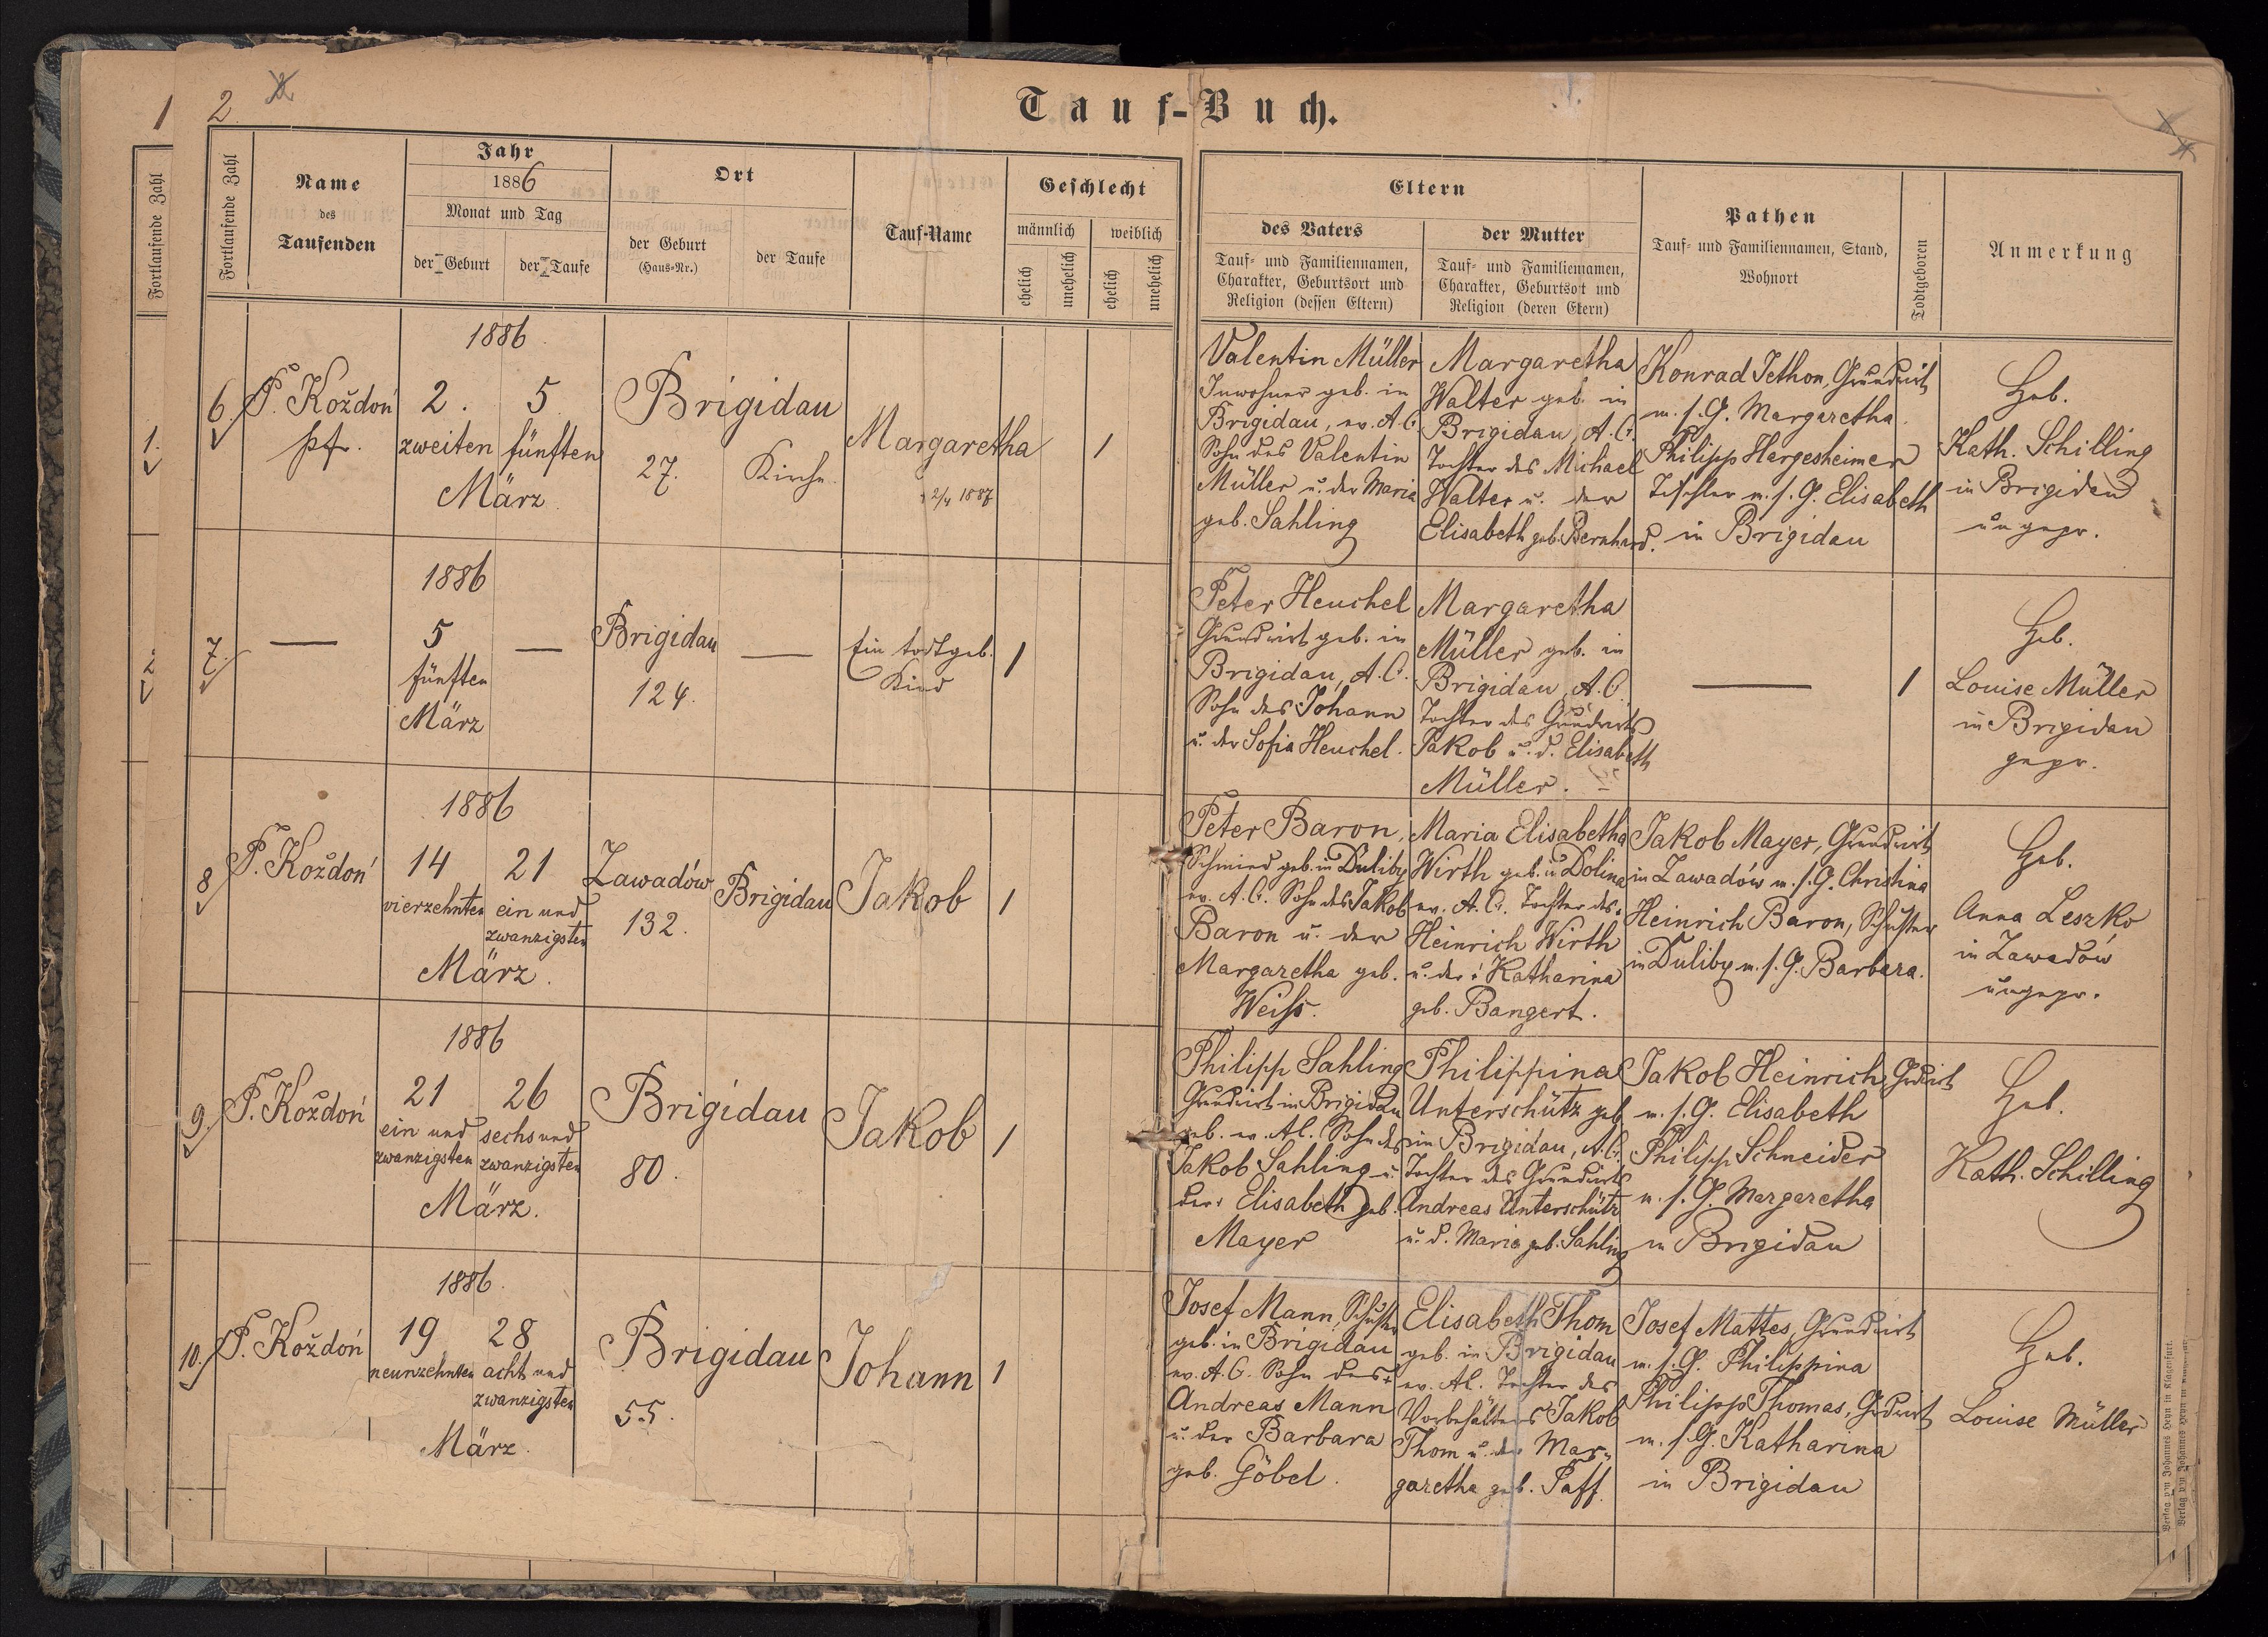 1
2
Tauf-Buch.
Fortlaufende Zahl
Fortlaufende Zahl
Name
des
Taufenden
Jahr
1886
Monat und Tag
der Geburt
der Taufe
Ort
der Geburt
(Haus-Nr.)
der Taufe
Tauf-Name
Geschlecht
männlich
weiblich
ehelich
unehelich
ehelich
unehelich
Eltern
des Vaters
Tauf- und Familiennamen,
Charakter, Geburtsort und
Religion (dessen Eltern)
der Mutter
Tauf- und Familiennamen,
Charakter, Geburtsort und
Religion (deren Eltern)
Pathen
Tauf- und Familiennamen, Stand,
Wohnort
Todtgeboren
Anmerkung
1.
6.
P. Koždoń
pfr.
1886
2. 5
zweiten fünften
März
Brigidau
27. Kirche
Margaretha
† 2/4 1887
1
Valentin Müller
Inwohner geb. in
Brigidau, ev. A.C.
Sohn des Valentin
Müller u. der Maria
geb. Sahling
Margaretha
Walter geb. in
Brigidau, A.C.
Tochter des Michael
Walter u. der
Elisabeth geb. Bernhard.
Konrad Jethon, Grundwirt
m. s. G. Margaretha
Philipp Hargesheimer
Tischler m. s. G. Elisabeth
in Brigidau
Heb.
Kath. Schilling
in Brigidau
ungepr.
2
7.
—
1886
5 —
fünften
März
Brigidau
124.
—
Ein todtgeb.
Kind
1
Peter Heuchel
Grundwirt geb. in
Brigidau, A.C.
Sohn des Johann
u. der Sofia Heuchel.
Margaretha
Müller geb. in
Brigidau, A.C.
Tochter des Grundwirts
Jakob u. d. Elisabeth
Müller.
—
1
Heb.
Louise Müller
in Brigidau
gepr.
8
P. Koždoń
1886
14 21
vierzehnten ein und
zwanzigsten
März.
Zawadów
132.
Brigidau
Jakob
1
Peter Baron,
Schmied geb. in Duliby
ev. A.C. Sohn des Jakob
Baron u. der
Margaretha geb.
Weiss.
Maria Elisabetha
Wirth geb. in Dolina
ev. A.C. Tochter des
Heinrich Wirth
u. der Katharina
geb. Bangert.
Jakob Mayer, Grundwirt
in Zawadów m. s. G. Christina
Heinrich Baron, Schuster
in Duliby m. s. G. Barbara.
Heb.
Anna Leszko
in Zawadów
ungepr.
9.
P. Koždoń
1886
21 26
ein und sechs und
zwanzigsten zwanzigsten
März.
Brigidau
80.
Jakob
1
Philipp Sahling
Grundwirt in Brigidau
geb. ev. A.C. Sohn des
Jakob Sahling u.
der Elisabeth geb.
Mayer
Philippina
Unterschütz geb.
in Brigidau, A.C.
Tochter des Grundwirts
Andreas Unterschütz
u. d. Maria geb. Sahling
Jakob Heinrich, Grdwirt
m. s. G. Elisabeth
Philipp Schneider
m. s. G. Margaretha
in Brigidau
Heb.
Kath. Schilling
10.
P. Koždoń
1886.
19 28
neunzehnten acht und
zwanzigsten
März.
Brigidau
55.
Johann
1
Josef Mann, Schuster
geb. in Brigidau
ev. A.C. Sohn des
Andreas Mann
u. der Barbara
geb. Göbel.
Elisabeth Thom
geb. in Brigidau
ev. A.C. Tochter des
Vorbehälters Jakob
Thom u. der Mar-
garetha geb. Paff.
Josef Mattes, Grundwirt
m. s. G. Philippina
Philipp Thomas, Grdwirt
m. s. G. Katharina
in Brigidau
Heb.
Louise Müller
Verlag von Johannes Heyn in Klagenfurt.